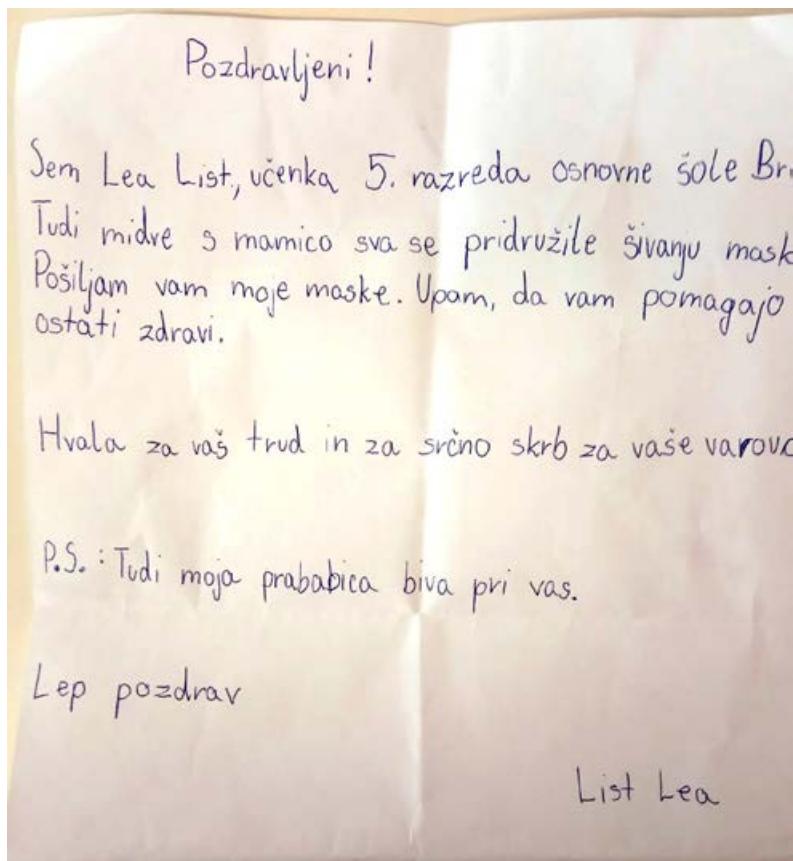 Pozdravljeni!
Sem Lea List, učenka 5. razreda osnovne šole
Tudi midve s mamico sva se pridružile šivanju
Pošiljam vam moje maske. Upam, da vam pomagajo
ostati zdravi.
Hvala za vaš trud in za srčno skrb za vaše
P.S.: Tudi moja prababica biva pri vas.
Lep pozdrav
List Lea